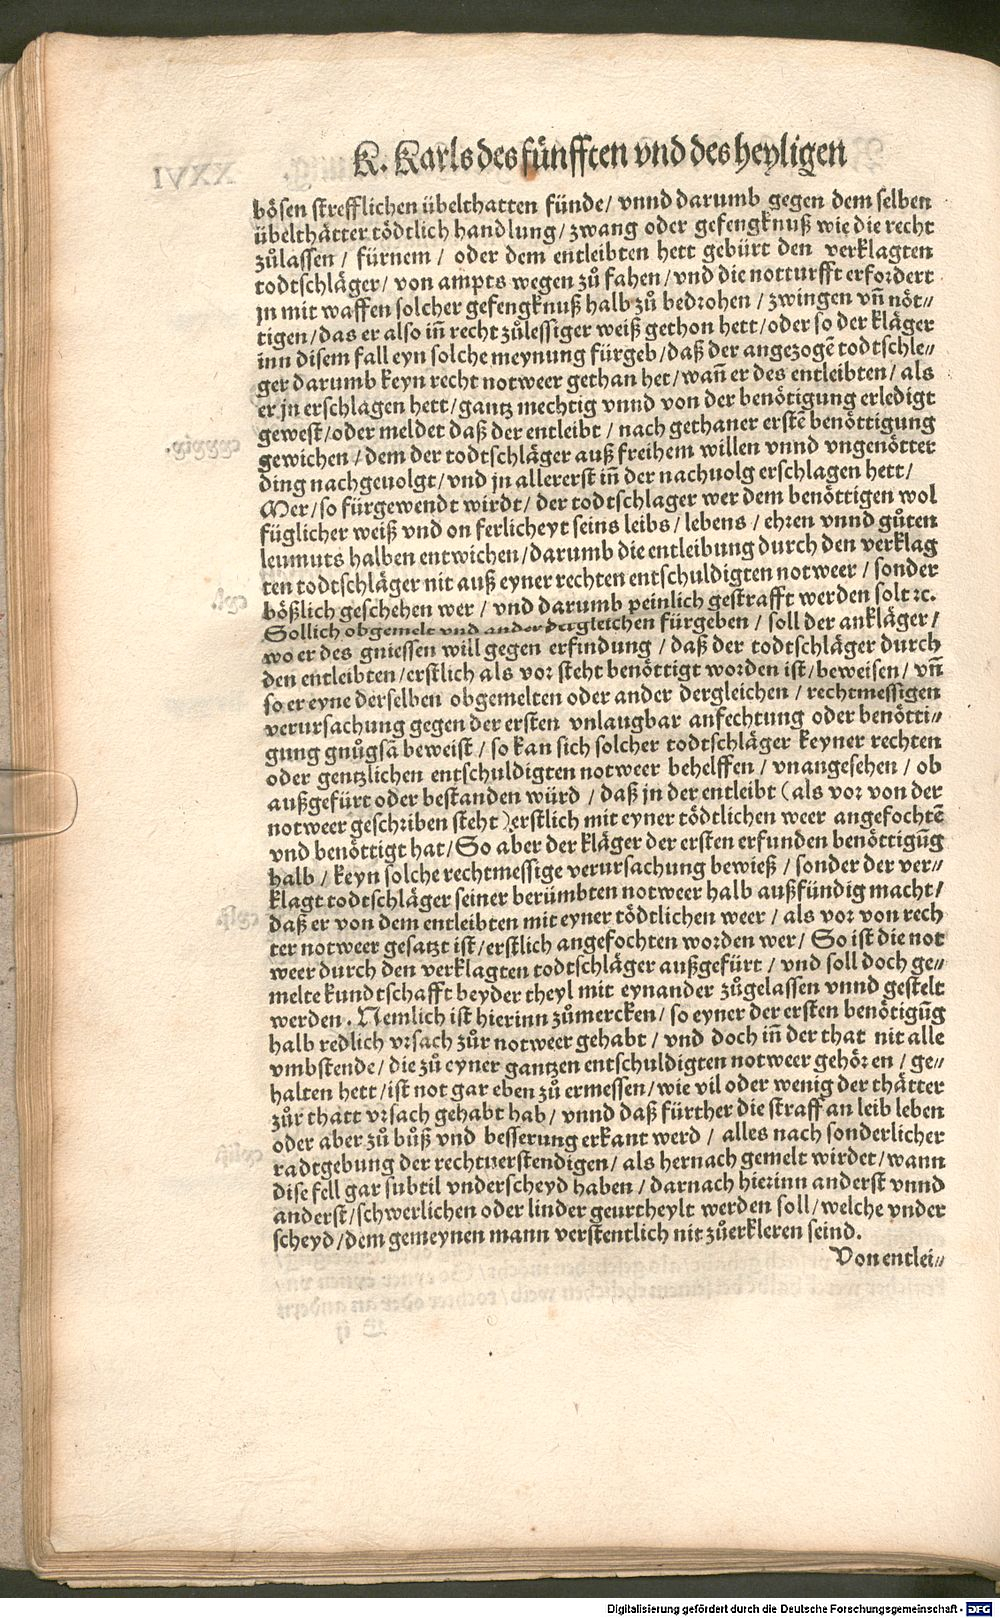 K. Karls des fünfften vnd des heyligen
bösen strefflichen übelthatten fünde/ vnnd darumb gegen dem selben
übelthätter tödtlich handlung/ zwang oder gefengknuß wie die recht
zůlassen / fürnem / oder dem entleibten hett gebürt den verklagten
todtschläger/ von ampts wegen zů fahen/ vnd die notturfft erfordert
jn mit waffen solcher gefengknuß halb zů bedrohen / zwingen vn̄ nöt⸗
tigen/das er also iñ recht zůlessiger weiß gethon hett/oder so der kläger
inn disem fall eyn solche meynung fürgeb/daß der angezogē todtschle⸗
ger darumb keyn recht notweer gethan het/wañ er des entleibten/ als
er jn erschlagen hett/gantz mechtig vnnd von der benötigung erledigt
gewest/oder meldet daß der entleibt / nach gethaner erstē benöttigung
gewichen / dem der todtschläger auß freihem willen vnnd vngenötter
ding nachgeuolgt/vnd jn allererst iñ der nachuolg erschlagen hett/
Mer/so fürgewendt wirdt/ der todtschlager wer dem benöttigen wol
füglicher weiß vnd on ferlicheyt seins leibs / lebens / ehren vnnd gůten
leumuts halben entwichen/darumb die entleibung durch den verklag
ten todtschläger nit auß eyner rechten entschuldigten notweer / sonder
bößlich geschehen wer / vnd darumb peinlich gestrafft werden solt ꝛc.
Sollich obgemelt vnd ander dergleichen fürgeben / soll der ankläger/
wo er des gniessen will gegen erfindung / daß der todtschläger durch
den entleibten/erstlich als vor steht benöttigt worden ist/beweisen/ vn̄
so er eyne derselben obgemelten oder ander dergleichen / rechtmessigen
verursachung gegen der ersten vnlaugbar anfechtung oder benötti⸗
gung gnůgsā beweist / so kan sich solcher todtschläger keyner rechten
oder gentzlichen entschuldigten notweer behelffen / vnangesehen / ob
außgefürt oder bestanden würd / daß jn der entleibt (als vor von der
notweer geschriben steht) erstlich mit eyner tödtlichen weer angefochtē
vnd benöttigt hat/ So aber der kläger der ersten erfunden benöttigūg
halb / keyn solche rechtmessige verursachung bewieß / sonder der ver⸗
klagt todtschläger seiner berümbten notweer halb außfündig macht/
daß er von dem entleibten mit eyner tödtlichen weer / als vor von rech
ter notweer gesatzt ist/erstlich angefochten worden wer/ So ist die not
weer durch den verklagten todtschläger außgefürt / vnd soll doch ge⸗
melte kundtschafft beyder theyl mit eynander zůgelassen vnnd gestelt
werden. Nemlich ist hierinn zůmercken/ so eyner der ersten benötigūg
halb redlich vrsach zůr notweer gehabt / vnd doch iñ der that nit alle
vmbstende/ die zů eyner gantzen entschuldigten notweer gehören / ge⸗
halten hett/ist not gar eben zů ermessen/wie vil oder wenig der thätter
zůr thatt vrsach gehabt hab/ vnnd daß fürther die straff an leib leben
oder aber zů bůß vnd besserung erkant werd / alles nach sonderlicher
radtgebung der rechtuerstendigen/ als hernach gemelt wirdet/wann
dise fell gar subtil vnderscheyd haben/ darnach hierinn anderst vnnd
anderst/schwerlichen oder linder geurtheylt werden soll/welche vnder
scheyd/dem gemeynen mann verstentlich nit zůerkleren seind.
Von entlei⸗
Digitalisierung gefördert durch die Deutsche Forschungsgemeinschaft - DFG